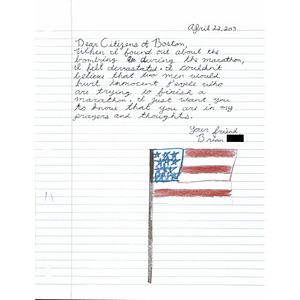 April 22, 2013
Dear Citizens of Boston,
When I found out about the
bombing during the marathon,
I felt devastated. I couldn't
believe that two men would
hurt innocent people who
are trying to finish a
marathon. I just want you
to know that you are in my
prayers and thoughts.
Your friend
Brian